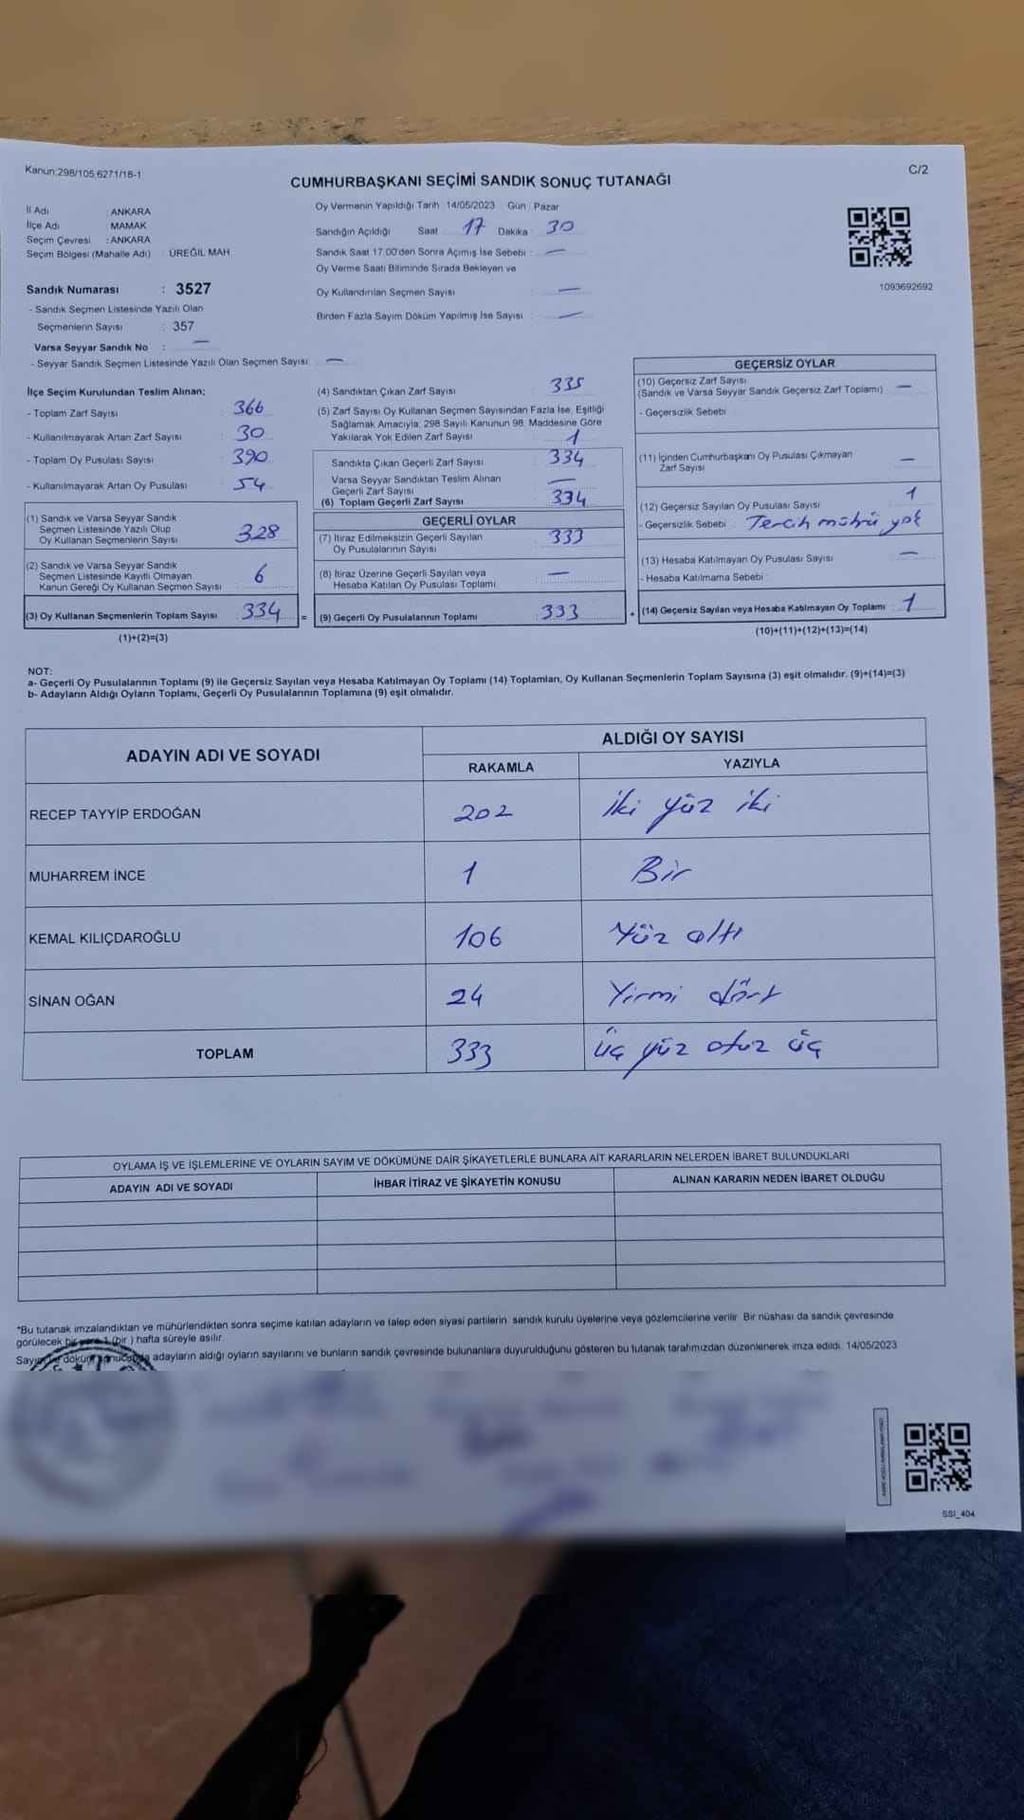 Kanun:298/105,6271/18-1
C/2
CUMHURBAŞKANI SEÇİMİ SANDIK SONUÇ TUTANAĞI
İl Adı : ANKARA
İlçe Adı : MAMAK
Seçim Çevresi : ANKARA
Seçim Bölgesi (Mahalle Adı) : ÜREĞİL MAH
Sandık Numarası : 3527
- Sandık Seçmen Listesinde Yazılı Olan
Seçmenlerin Sayısı : 357
Varsa Seyyar Sandık No : —
- Seyyar Sandık Seçmen Listesinde Yazılı Olan Seçmen Sayısı : —
Oy Vermenin Yapıldığı Tarih : 14/05/2023 Gün : Pazar
Sandığın Açıldığı Saat : 17 Dakika : 30
Sandık Saat 17.00'den Sonra Açımış İse Sebebi : —
Oy Verme Saati Bitiminde Sırada Bekleyen ve
Oy Kullandırılan Seçmen Sayısı : —
Birden Fazla Sayım Döküm Yapılmış İse Sayısı : —
1093692692
İlçe Seçim Kurulundan Teslim Alınan;
- Toplam Zarf Sayısı 366
- Kullanılmayarak Artan Zarf Sayısı 30
- Toplam Oy Pusulası Sayısı 390
- Kullanılmayarak Artan Oy Pusulası 54
(1) Sandık ve Varsa Seyyar Sandık
Seçmen Listesinde Yazılı Olup
Oy Kullanan Seçmenlerin Sayısı 328
(2) Sandık ve Varsa Seyyar Sandık
Seçmen Listesinde Kayıtlı Olmayan
Kanun Gereği Oy Kullanan Seçmen Sayısı 6
(3) Oy Kullanan Seçmenlerin Toplam Sayısı 334 =
(1)+(2)=(3)
(4) Sandıktan Çıkan Zarf Sayısı 335
(5) Zarf Sayısı Oy Kullanan Seçmen Sayısından Fazla İse, Eşitliği
Sağlamak Amacıyla, 298 Sayılı Kanunun 98. Maddesine Göre
Yakılarak Yok Edilen Zarf Sayısı 1
Sandıkta Çıkan Geçerli Zarf Sayısı 334
Varsa Seyyar Sandıktan Teslim Alınan
Geçerli Zarf Sayısı —
(6) Toplam Geçerli Zarf Sayısı 334
GEÇERLİ OYLAR
(7) İtiraz Edilmeksizin Geçerli Sayılan
Oy Pusulalarının Sayısı 333
(8) İtiraz Üzerine Geçerli Sayılan veya
Hesaba Katılan Oy Pusulası Toplamı —
(9) Geçerli Oy Pusulalarının Toplamı 333 +
GEÇERSİZ OYLAR
(10) Geçersiz Zarf Sayısı
(Sandık ve Varsa Seyyar Sandık Geçersiz Zarf Toplamı) —
- Geçersizlik Sebebi
(11) İçinden Cumhurbaşkanı Oy Pusulası Çıkmayan
Zarf Sayısı —
(12) Geçersiz Sayılan Oy Pusulası Sayısı 1
- Geçersizlik Sebebi : Tercih mührü yok
(13) Hesaba Katılmayan Oy Pusulası Sayısı —
- Hesaba Katılmama Sebebi
(14) Geçersiz Sayılan veya Hesaba Katılmayan Oy Toplamı 1
(10)+(11)+(12)+(13)=(14)
NOT:
a- Geçerli Oy Pusulalarının Toplamı (9) ile Geçersiz Sayılan veya Hesaba Katılmayan Oy Toplamı (14) Toplamları, Oy Kullanan Seçmenlerin Toplam Sayısına (3) eşit olmalıdır. (9)+(14)=(3)
b- Adayların Aldığı Oyların Toplamı, Geçerli Oy Pusulalarının Toplamına (9) eşit olmalıdır.
ADAYIN ADI VE SOYADI
ALDIĞI OY SAYISI
RAKAMLA YAZIYLA
RECEP TAYYİP ERDOĞAN 202 İki yüz iki
MUHARREM İNCE 1 Bir
KEMAL KILIÇDAROĞLU 106 Yüz altı
SİNAN OĞAN 24 Yirmi dört
TOPLAM 333 üç yüz otuz üç
OYLAMA İŞ VE İŞLEMLERİNE VE OYLARIN SAYIM VE DÖKÜMÜNE DAİR ŞİKAYETLERLE BUNLARA AİT KARARLARIN NELERDEN İBARET BULUNDUKLARI
ADAYIN ADI VE SOYADI İHBAR İTİRAZ VE ŞİKAYETİN KONUSU ALINAN KARARIN NEDEN İBARET OLDUĞU
*Bu tutanak imzalandıktan ve mühürlendikten sonra seçime katılan adayların ve talep eden siyasi partilerin sandık kurulu üyelerine veya gözlemcilerine verilir. Bir nüshası da sandık çevresinde
görülecek bir yere 1 (bir) hafta süreyle asılır.
adayların aldığı oyların sayılarını ve bunların sandık çevresinde bulunanlara duyurulduğunu gösteren bu tutanak tarafımızdan düzenlenerek imza edildi. 14/05/2023
SSI_404